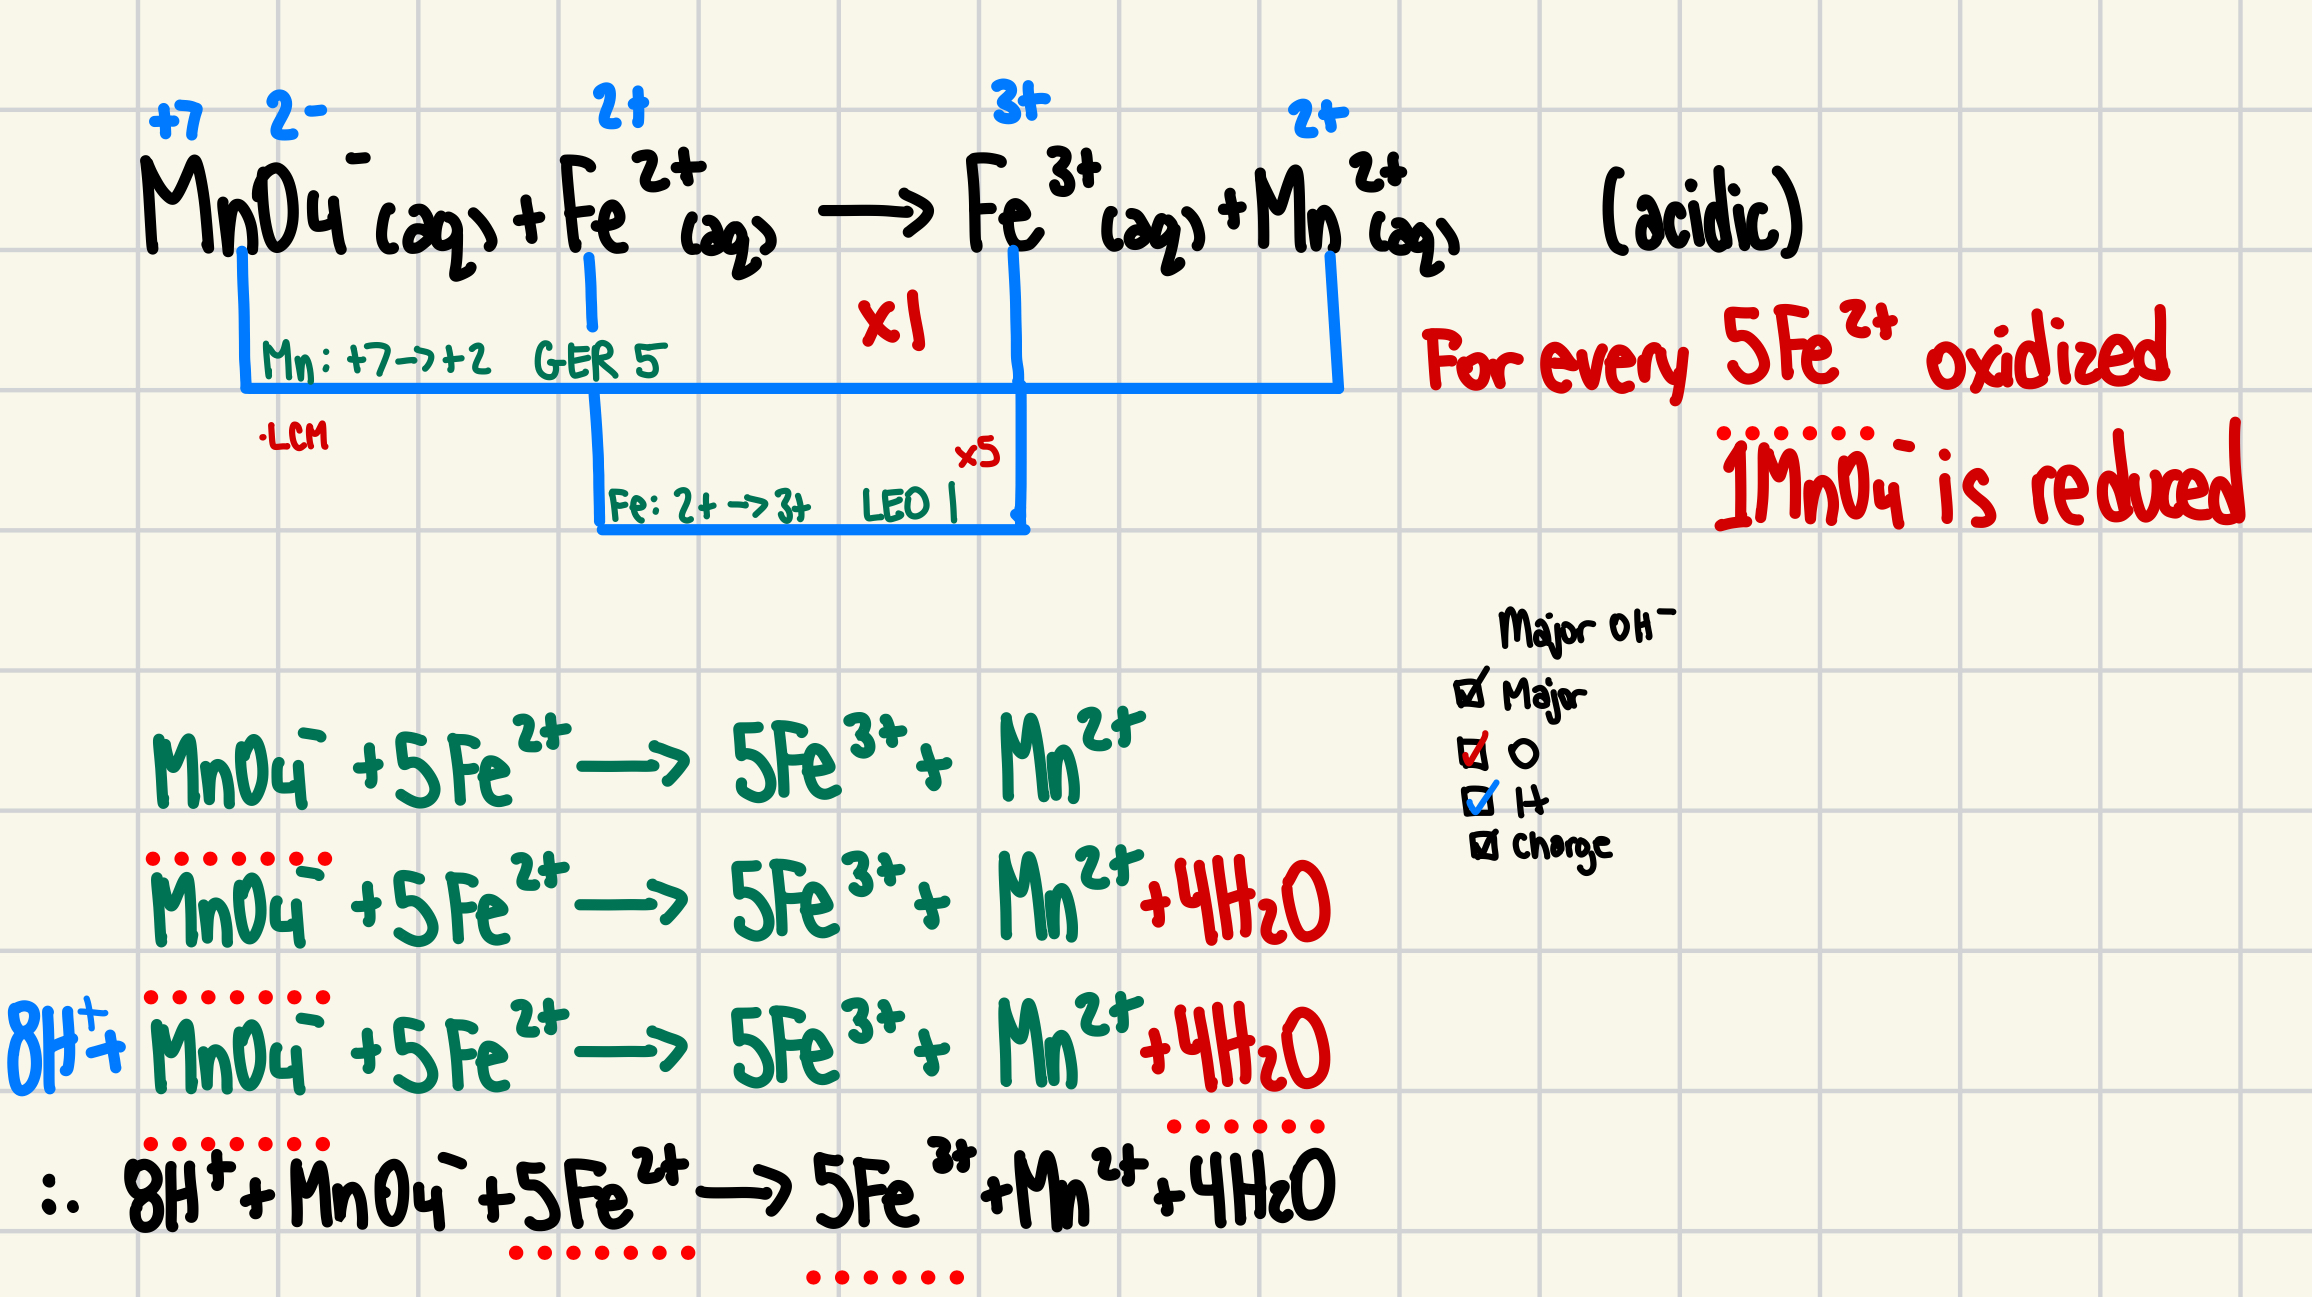 +7 2- 2+ 3+ 2+
MnO₄⁻(aq) + Fe²⁺(aq) → Fe³⁺(aq) + Mn²⁺(aq) (acidic)
x1
Mn: +7→+2 GER 5
For every 5Fe²⁺ oxidized
·LCM
x5
1MnO₄⁻ is reduced
Fe: 2+ → 3+ LEO 1
Major OH⁻
☑ Major
☑ O
☑ H
☑ Charge
MnO₄⁻ + 5Fe²⁺ → 5Fe³⁺ + Mn²⁺
MnO₄⁻ + 5Fe²⁺ → 5Fe³⁺ + Mn²⁺ + 4H₂O
8H⁺ + MnO₄⁻ + 5Fe²⁺ → 5Fe³⁺ + Mn²⁺ + 4H₂O
∴ 8H⁺ + MnO₄⁻ + 5Fe²⁺ → 5Fe³⁺ + Mn²⁺ + 4H₂O